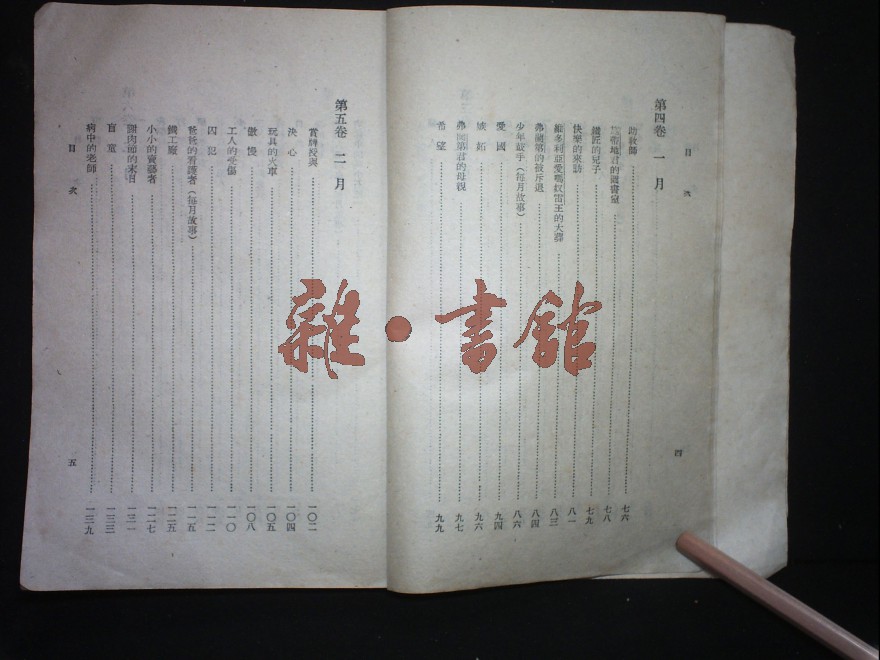 目次
第四卷 一月
助教師 七六
斯帶地君的圖書室 七八
鐵匠的兒子 七九
快樂的來訪 八一
維多利亞愛瑪奴雷王的大葬 八三
弗蘭第的被斥退 八四
少年鼓手(每月故事) 八六
愛國 九四
嫉妬 九六
弗蘭第君的母親 九七
希望 九九
四
第五卷 二月
賞牌授與 一〇二
決心 一〇四
玩具的火車 一〇五
傲慢 一〇八
工人的受傷 一一〇
囚犯 一一二
爸爸的看護者(每月故事) 一一五
鐵工廠 一二五
小小的賣藝者 一二七
謝肉節的末日 一三一
盲童 一三三
病中的老師 一三九
目次
五
雜·書館